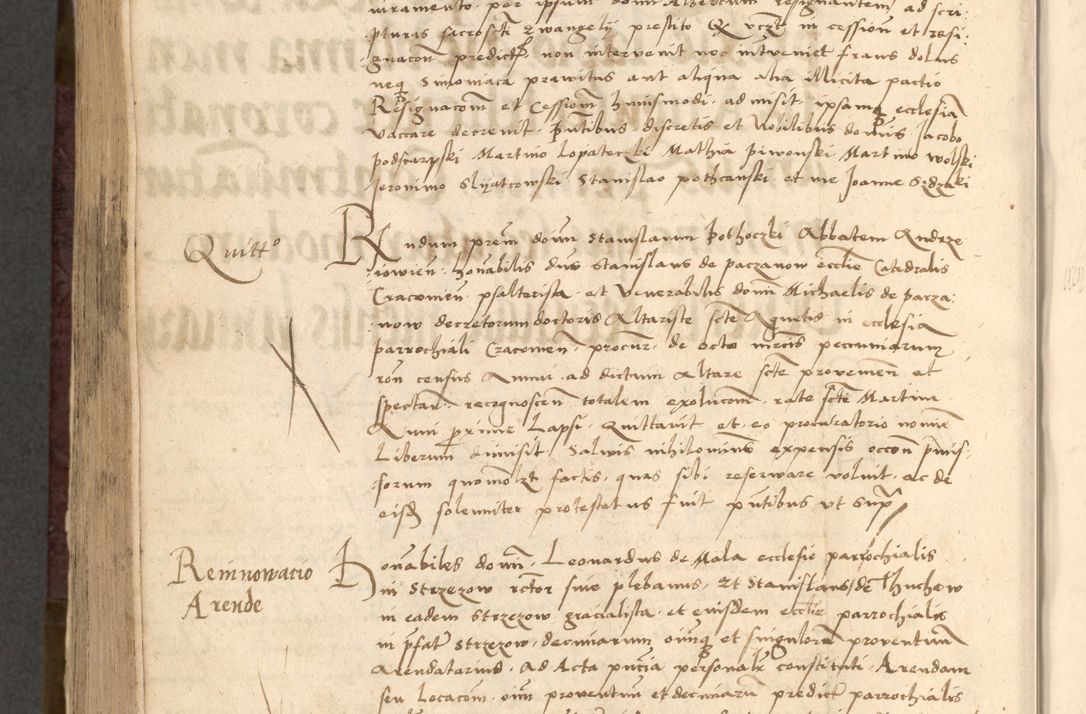 iuramento per ipsum domi Albertum resignantem ad scri:
pturas sacroscti Ewangelij prestito Q vczt in cessioni et resi:
gnacon predict non intervenit nec intveniet fraus dolus
neq Simoniaca prawitas aut aliqua alia illicita pactio
Resignacom et Cessiom huiusmodi admisit ipsamq ecclesia
vaccare decrevit Pntibus discretis et Nobilibus domis Jacobo
podscarpski Martino Lopateczki Mathia piwonski Martino wolski
Jeronimo Slyatcowski Stanislao pothcanski et me Joanne
Quitto
Rndum prem domi Stanislaum Pothoczki Abbatem Andrze
iowien honabilis dns Stanislaus de paczanow ecctie Catedralis
Cracowien psalterista et Venerabilis domi Michaelis de pacza:
now decretorum doctoris Altariste scte Agnetis in ecclesia
parrochiali Cracowien procur de octo mrcis peccuniarum
ron census Annui ad dictum Altare scte provenien et
spectan recognoscen totalem exolucom rate scti Martini
Anni prime Lapsi Quittavit et eo procuratorio nomine
Liberum dimisit Salvis nihilominus expensis occon pmis:
sorum quomolzt factis quas sibi reserware voluit ac de
eisd solenniter protestatus fuit pntibus vt supra
Reinnowacio
Arende
Honabiles domi Leonardus de Mala ecclesie parrochialis
in Strzezow rctor sive plebanus Et Stanislaus de Thuchow
in eadem Strzezow gracialista et eiusdem ecctie parrochialis
in pfat Strzezow decimarum oimq et singulorum proventuum
Arendatarius Ad Acta pncia personalr constituti Arendam
seu Locacom oim proventum et decimaru predict parrochialis